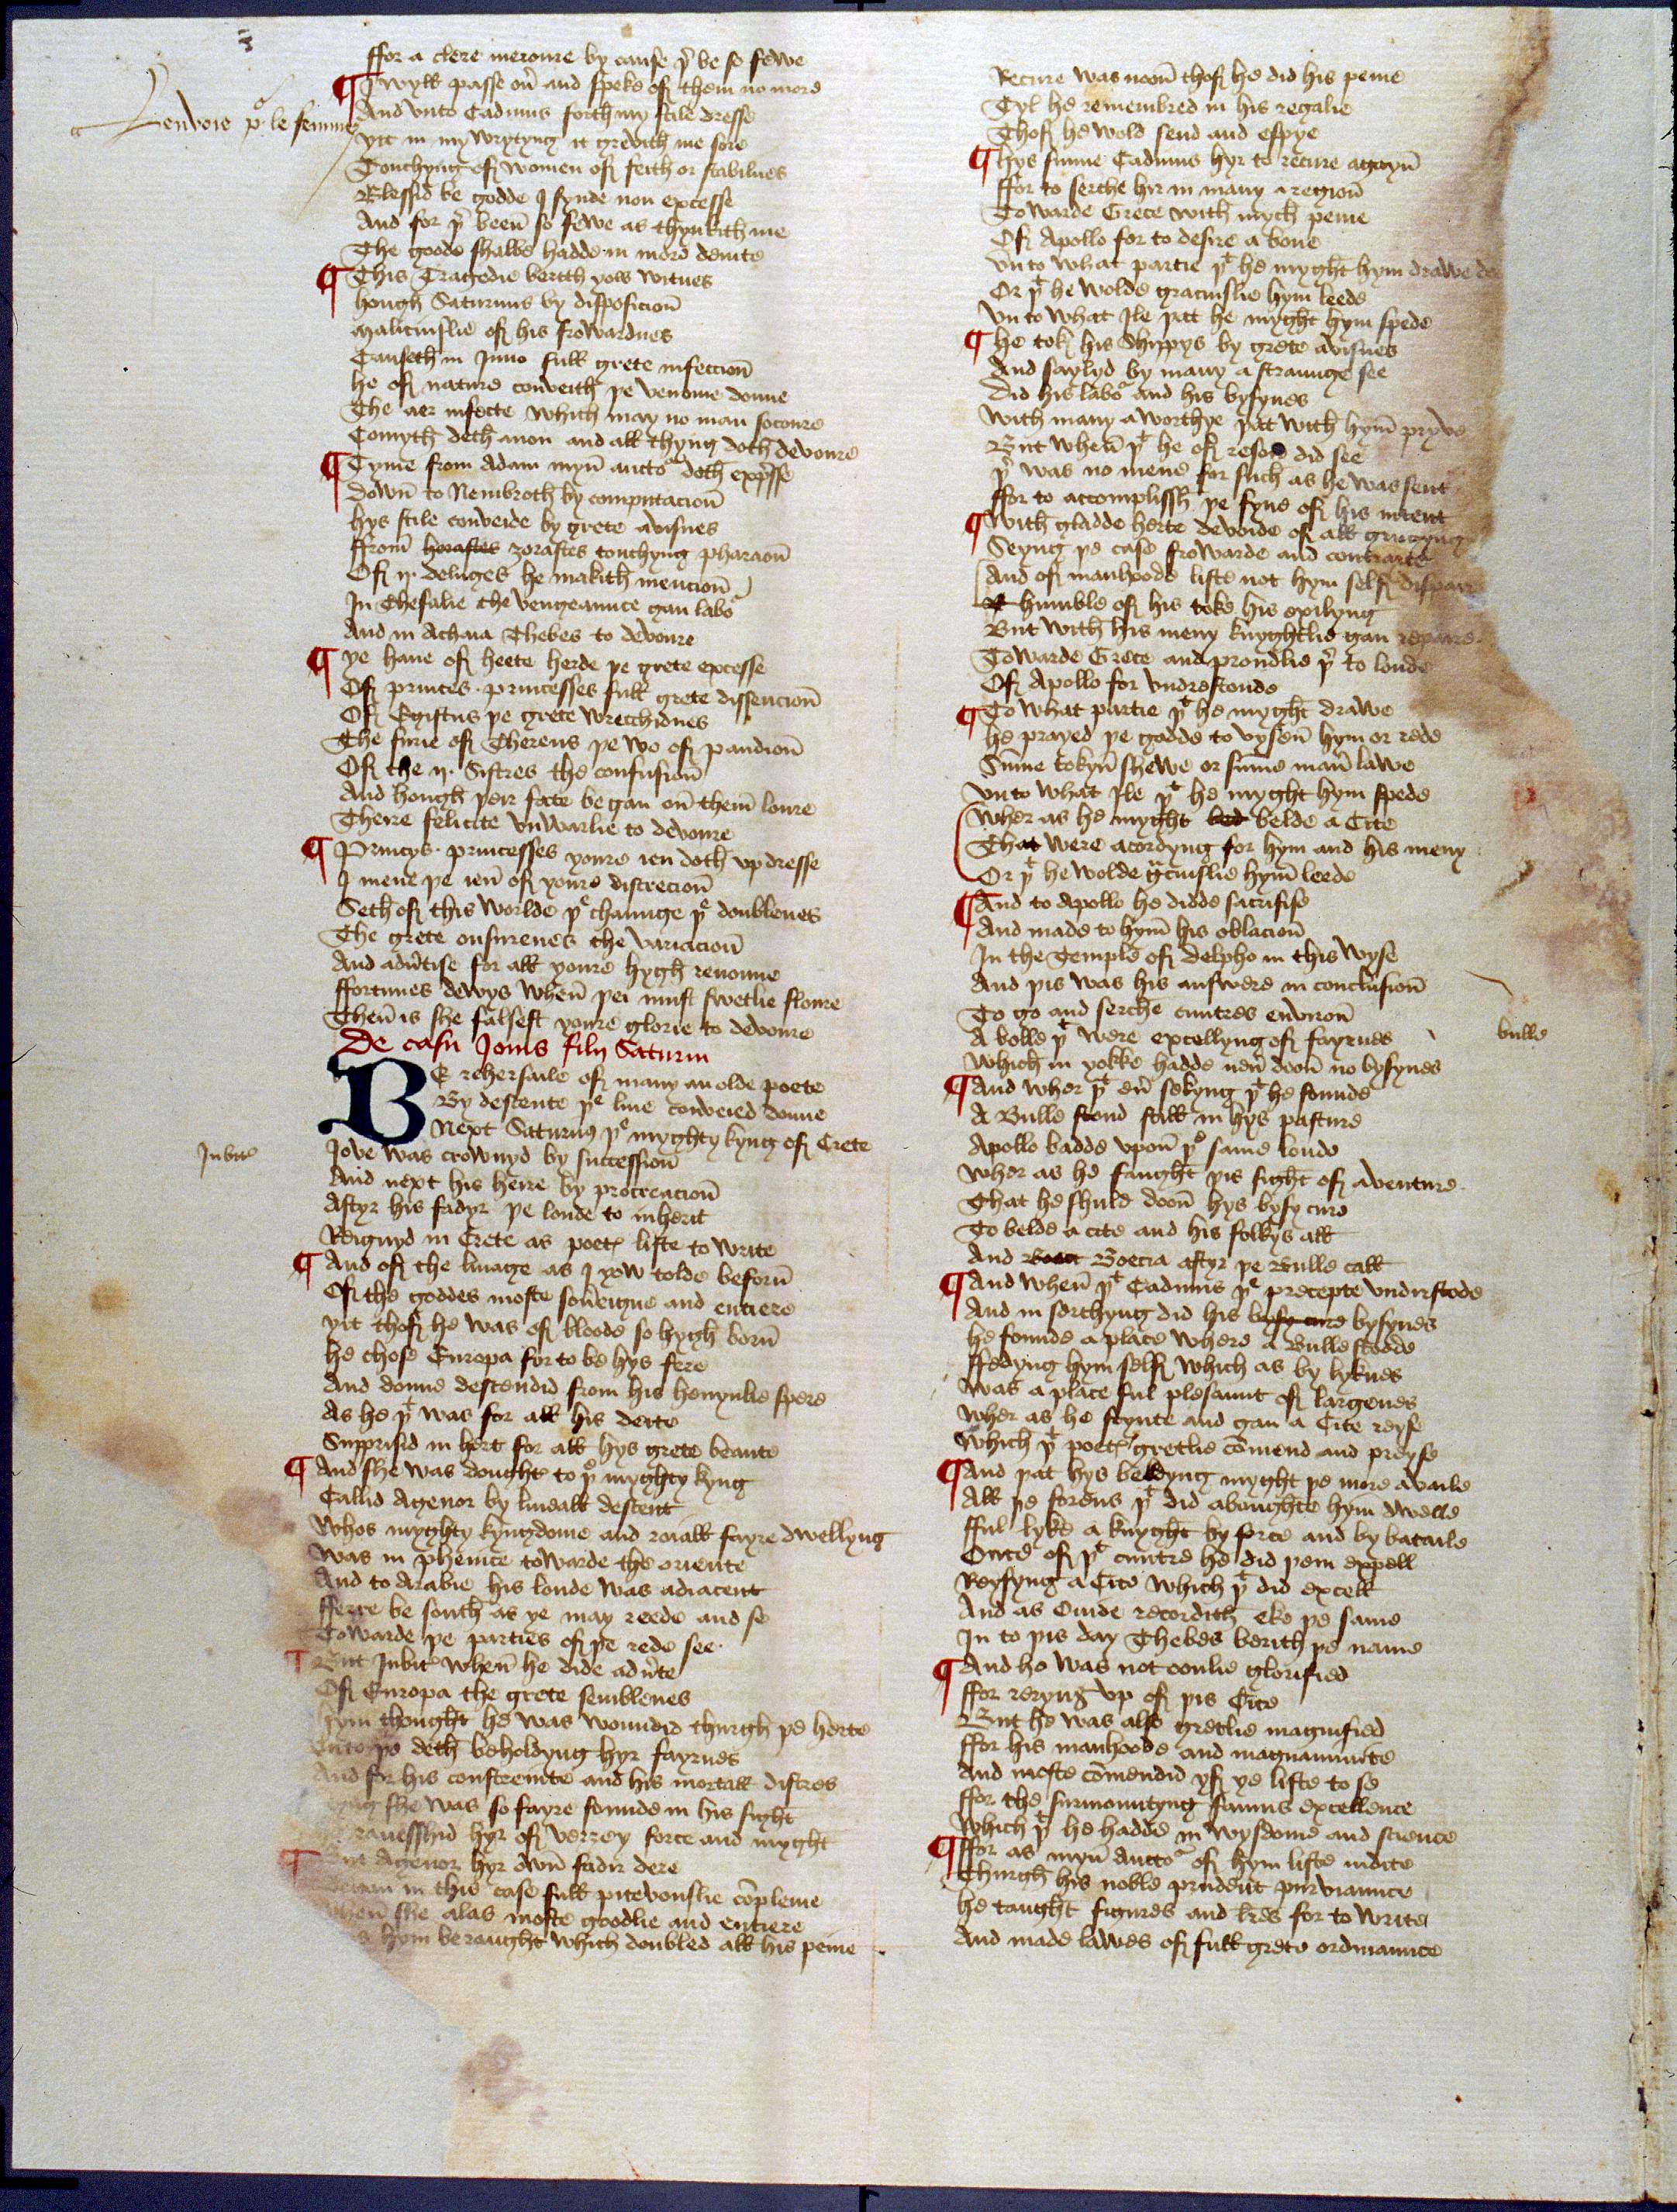 Lenvoie p le femmes
ffor a clere meroure by cause þr be so fewe
I wyll passe ou and speke of them no more
And vnto Cadmus forth my stile dresse
yit in my wrytyng it grevith me sore
Touchyng of women of feith or stabilnes
Blessid be godde I fynde non excesse
And for þr been so fewe as thynkith me
The goode shalbe hadde in more deinte
This Tragedie berith yow witnes
hough Saturnus by disposicion
maliciuslie of his frowardnes
Causeth in Juno full grete infeccion
he of nature conveith þe venome donne
The aer infecte which may no man socoure
Comyth deth anon and all thyng doth devoure
Tyme from Adam myn auctor doth expresse
down to Nembroth by computacion
hys stile conveide by grete avisnes
ffrom horastes zorastes touchyng pharaon
Of ij. deluges he makith mencion
In Thesalie the vengeaunce gan labor
And in Achaia Thebes to devoure
ye haue of heete herde þe grete excesse
Of princes . princesses full grete dissencion
Of Egistus þe grete wrecchidnes
The furie of Thereus þe wo of pandion
Of the ij. Sistres the confusion
And hough þeir facte began on them loure
Theire felicite vnwarlie to devoure
Princys . princesses youre ien doth vp dresse
I mene þe ien of youre discrecion
Seth of this worlde þe chaunge þe doublenes
The grete onsurenes the variacion
And aduertise for all youre hygh renoune
ffortunes dewys when þei must swetlie floure
Then is she falsest youre glorie to devoure
De casu Jouis filij Saturni
BE rehersaile of many an olde poete
By descente þe line conveied donne
Next Saturnus þe myghty kyng of Crete
Jubiter
Jove was crownyd by succession
And next his heire by procreacion
Aftyr his fadyr þe londe to inherit
Reignyd in Crete as poetes liste to write
And of the linage as I yow tolde beforn
Of the goddes moste souereigne and entiere
yit thof he was of bloode so hygh born
he chose Europa for to be hys fere
And donne descendid from his hevynlie spere
As he þt was for all his deite
Supprisid in hert for all hys grete beaute
And she was doughter to þe myghty kyng
Callid Agenor by lineall descent
whos myghty kyngdome and roiall fayre dwellyng
was in phenice towarde the oriente
And to Arabie his londe was adiacent
fferre be south as ye may reede and se
Towarde þe parties of þe rede see
But Jubiter when he dide aduerte
Of Europa the grete semblenes
hym thought he was woundid thurgh þe herte
Unto þe deth beholdyng hyr fayrnes
And for his constreinte and his mortall distres
she was so fayre founde in his sight
ravesshid hyr of verrey force and myght
But Agenor hyr own fadir dere
in this case full pitevouslie compleine
when she alas moste goodlie and entiere
hym beraught which doubled all his peine
Recure was noon thof he did his peine
Tyl he remembred in his regalie
Thof he wold send and espye
hys sunne Cadmus hyr to recure agayn
ffor to serche hir in many a region
Towarde Grece with mych peine
Of Apollo for to desire a bone
vnto what partie þt he myght hym drawe
Or þt he wolde graciuslie hym leede
vnto what Ile þat he myght hym spede
he tok his shippys by grete avisnes
And saylyd by many a straunge see
did his labor and his bysynes
with many a worthye þat with hym
But when þt he of reson did see
þr was no mene for such as he was sent
ffor to accomplissh þe fyne of his intent
with gladde herte devoide of all grucchyng
Seyng þe case frowarde and contrarie
And of manhoode liste not hym self dispair
humble of his toke his exilyng
But with his meny knyghtlie gan repaire
Towarde Grece and proudlie þr to londe
Of Apollo for vndrestonde
To what partie þt he myght drawe
he prayed þe godde to vysen hym or rede
Sume tokyn shewe or sume man lawe
vnto what Ile þt he myght hym spede
wher as he myght bed belde a Cite
That were acordyng for hym and his meny
Or þt he wolde graciuslie hym leede
And to Apollo he didde sacrifise
And made to hym his oblacion
In the Temple of delpho in this wyse
And þis was his answere in conclusion
To go and serche cuntres environ
A bolle þt were excellyng of fayrnes
bulle
which in yokke hadde neuer doon no bysynes
And wher þt euer sekyng þt he founde
A Bulle stond stall in hys pasture
Apollo badde vpon þe same londe
wher as he faught þis fight of aventure
That he shuld doon hys bysy cure
To belde a cite and his folkys all
And Boecia aftyr þe Bulle call
And when þt Cadmus þe precepte vndirstode
And in serchyng did his bysy cure bysynes
he founde a place where a Bulle stoode
ffedyng hym self which as by lyknes
was a place ful plesaunt of largenes
wher as he stynte and gan a Cite reyse
which þt poetes gretlie comend and preyse
And þat hys beldyng myght þe more availe
All þe foreins þt did aboughte hym dwelle
fful lyke a knyght by force and by bataile
Oute of þt cuntre he did þem expell
Reysyng a Cite which þt did excell
And as Ouide recordith eke þe same
In to þis day Thebes berith þe name
And he was not oonlie glorified
ffor reryng vp of þis Cite
But he was also gretlie magnified
ffor his manhoode and magnanimite
And moste comendid yf ye liste to se
ffor the surmountyng famus excellence
which þt he hadde in wysdome and science
ffor as myn Auctor of hym liste indite
Thurgh his noble prudent purviaunce
he taught figures and lres for to write
And made lawes of full grete ordinaunce